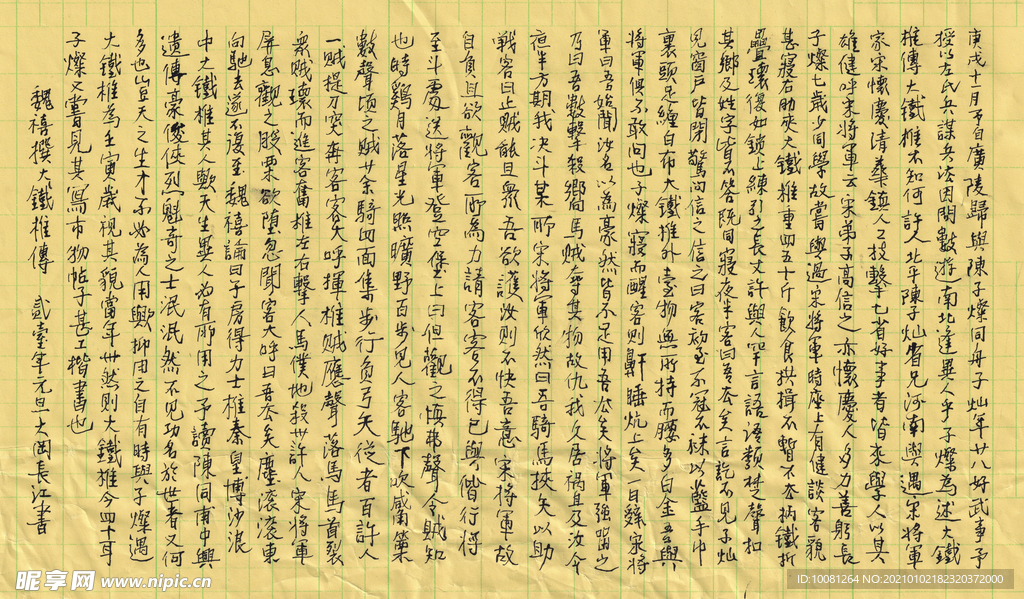 庚戌十一月予自廣陵歸與陳子燦同舟子燦年廿八好武事予
授以左氏兵謀兵法因問數游南北逢異人乎子燦為述大鐵
椎傳大鐵椎不知何許人北平陳子燦省兄河南與遇宋將軍
家宋懷慶清華鎮人工技擊七省好事者皆來學人以其
雄健呼宋將軍云宋弟子高信之亦懷慶人多力善射長
子燦七歲少同學故嘗與過宋將軍時座上有健談客貌
甚寢右肋夾大鐵椎重四五十斤飲食拱揖不暫去柄鐵折
疊環復如鎖上練引之長丈許與人罕言語語類楚聲扣
其鄉及姓字皆不答既同寢夜半客曰吾去矣言訖不見子燦
見窗戶皆閉驚問信之信之曰客初至不冠不襪以藍手巾
裹頭足纏白布大鐵椎外一物無所持而腰多白金吾與
將軍俱不敢問也子燦寢而醒客則鼾睡炕上矣一日辭宋將
軍曰吾始聞汝名以為豪然皆不足用吾去矣將軍強留之
乃曰吾數擊殺響馬賊奪其物故仇我久居禍且及汝今
夜半方期我決斗某所宋將軍欣然曰吾騎馬挾矢以助
戰客曰止賊能且眾吾欲護汝則不快吾意宋將軍故
自負且欲觀客所為力請客客不得已與偕行將
至斗處送將軍登空堡上曰但觀之慎弗聲令賊知
也時鷄月落星光照曠野百步見人客馳下吹觱篥
數聲頃之賊廿余騎四面集步行負弓矢從者百許人
一賊提刀突奔客客大呼揮椎賊應聲落馬馬首裂
眾賊環而進客奮椎左右擊人馬僕地殺卅許人宋將軍
屏息觀之股栗欲墮忽聞客大呼曰吾去矣塵滾滾東
向馳去遂不復至魏禧論曰子房得力士椎秦皇博沙浪
中大鐵椎其人歟天生異人必有所用之予讀陳同甫中興
遺傳豪俊俠烈魁奇之士泯泯然不見功名於世者又何
多也豈天之生才不必為人用歟抑用之自有時與子燦遇
大鐵椎為壬寅歲視其貌當年卅然則大鐵椎今四十耳
子燦又嘗見其寫市物帖子甚工楷書也
魏禧撰大鐵椎傳 貳零臺年元旦大岡長江書
昵享网 www.nipic.cn
ID:10081264 NO:20210102182320372000